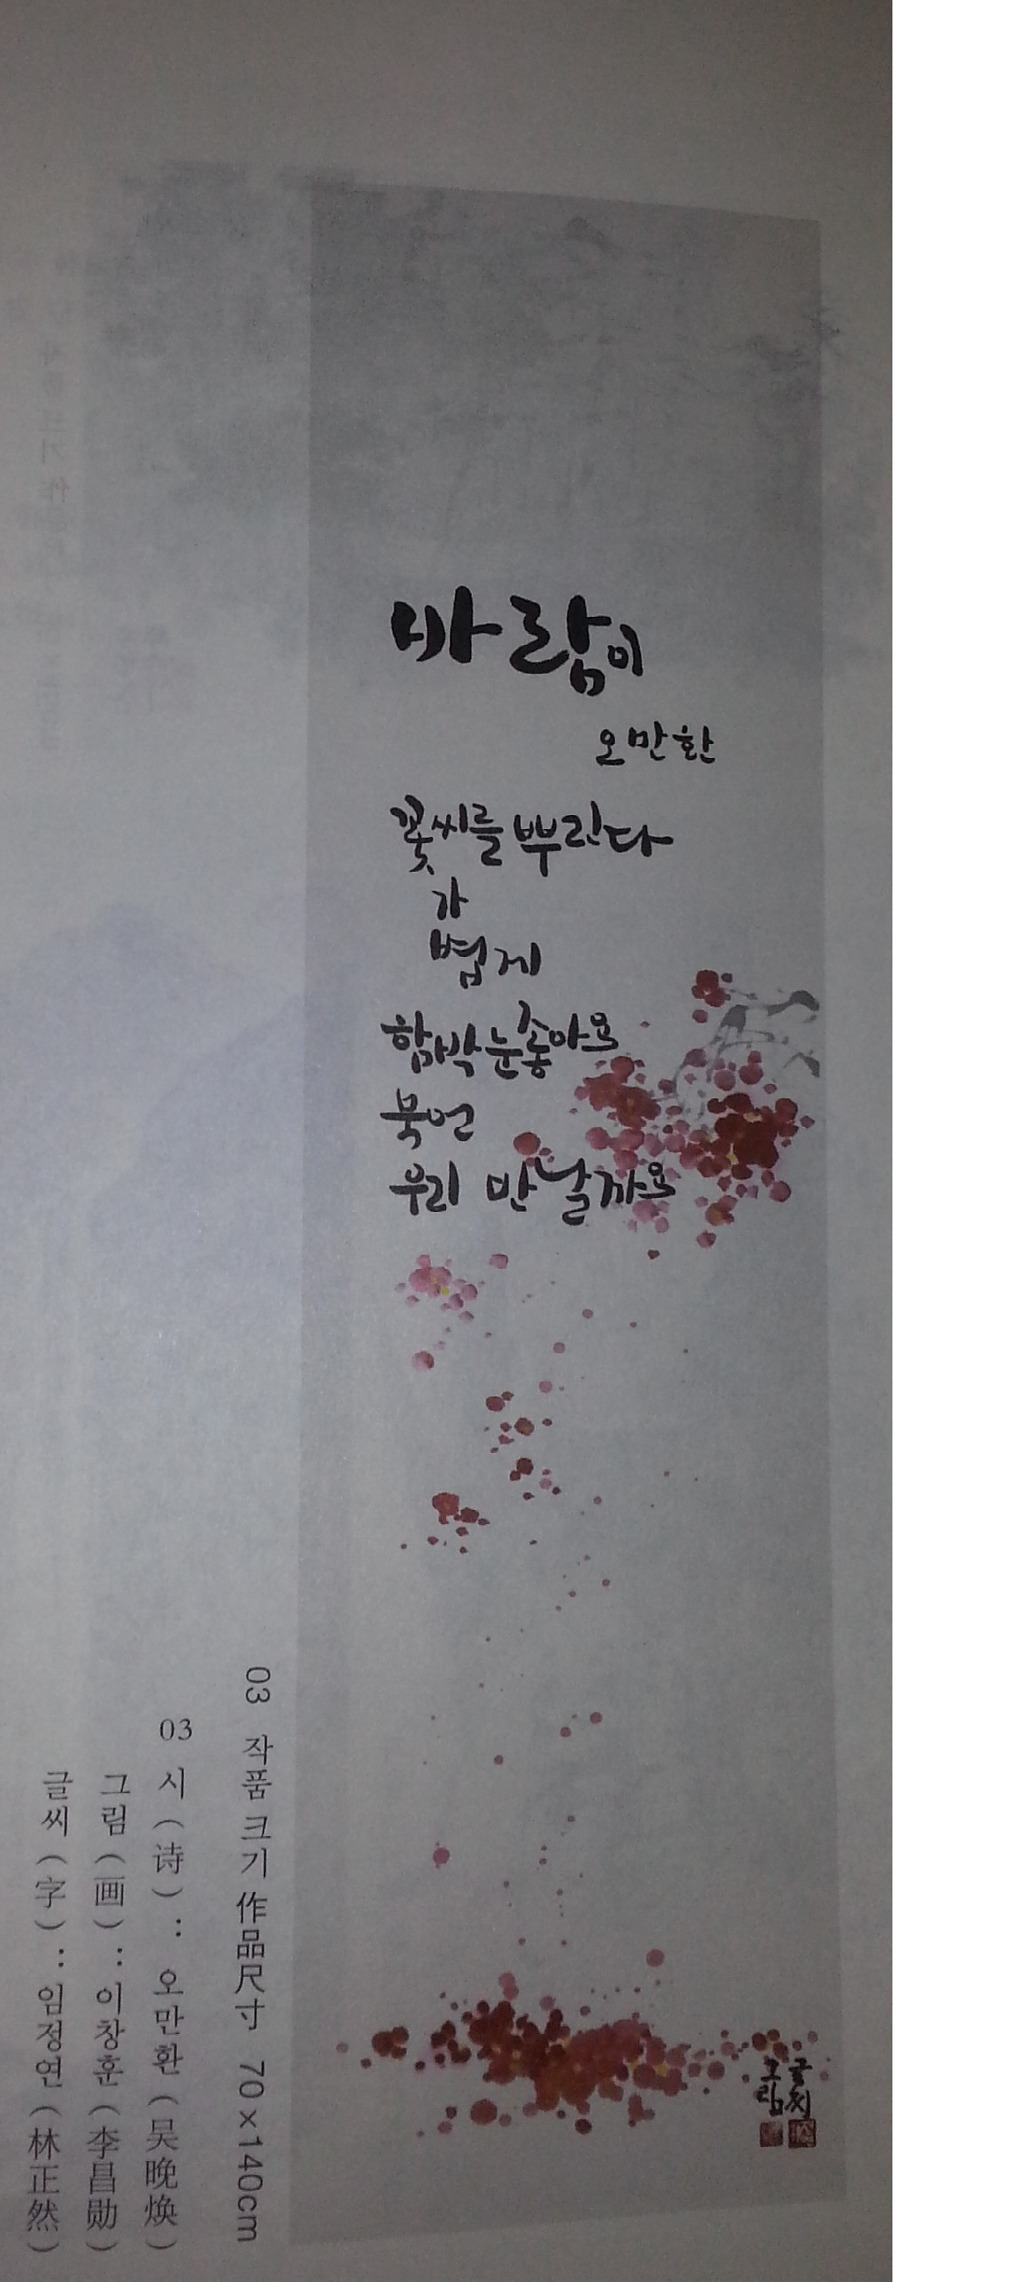 바람이
오만환
꽃씨를 뿌린다
가
볍게
함박눈 좋아요
북언
우리 만날까요
글씨
그림
03 작품 크기 作品尺寸 70×140cm
03 시(诗): 오만환(吴晚焕)
그림(画): 이창훈(李昌勋)
글씨(字): 임정연(林正然)